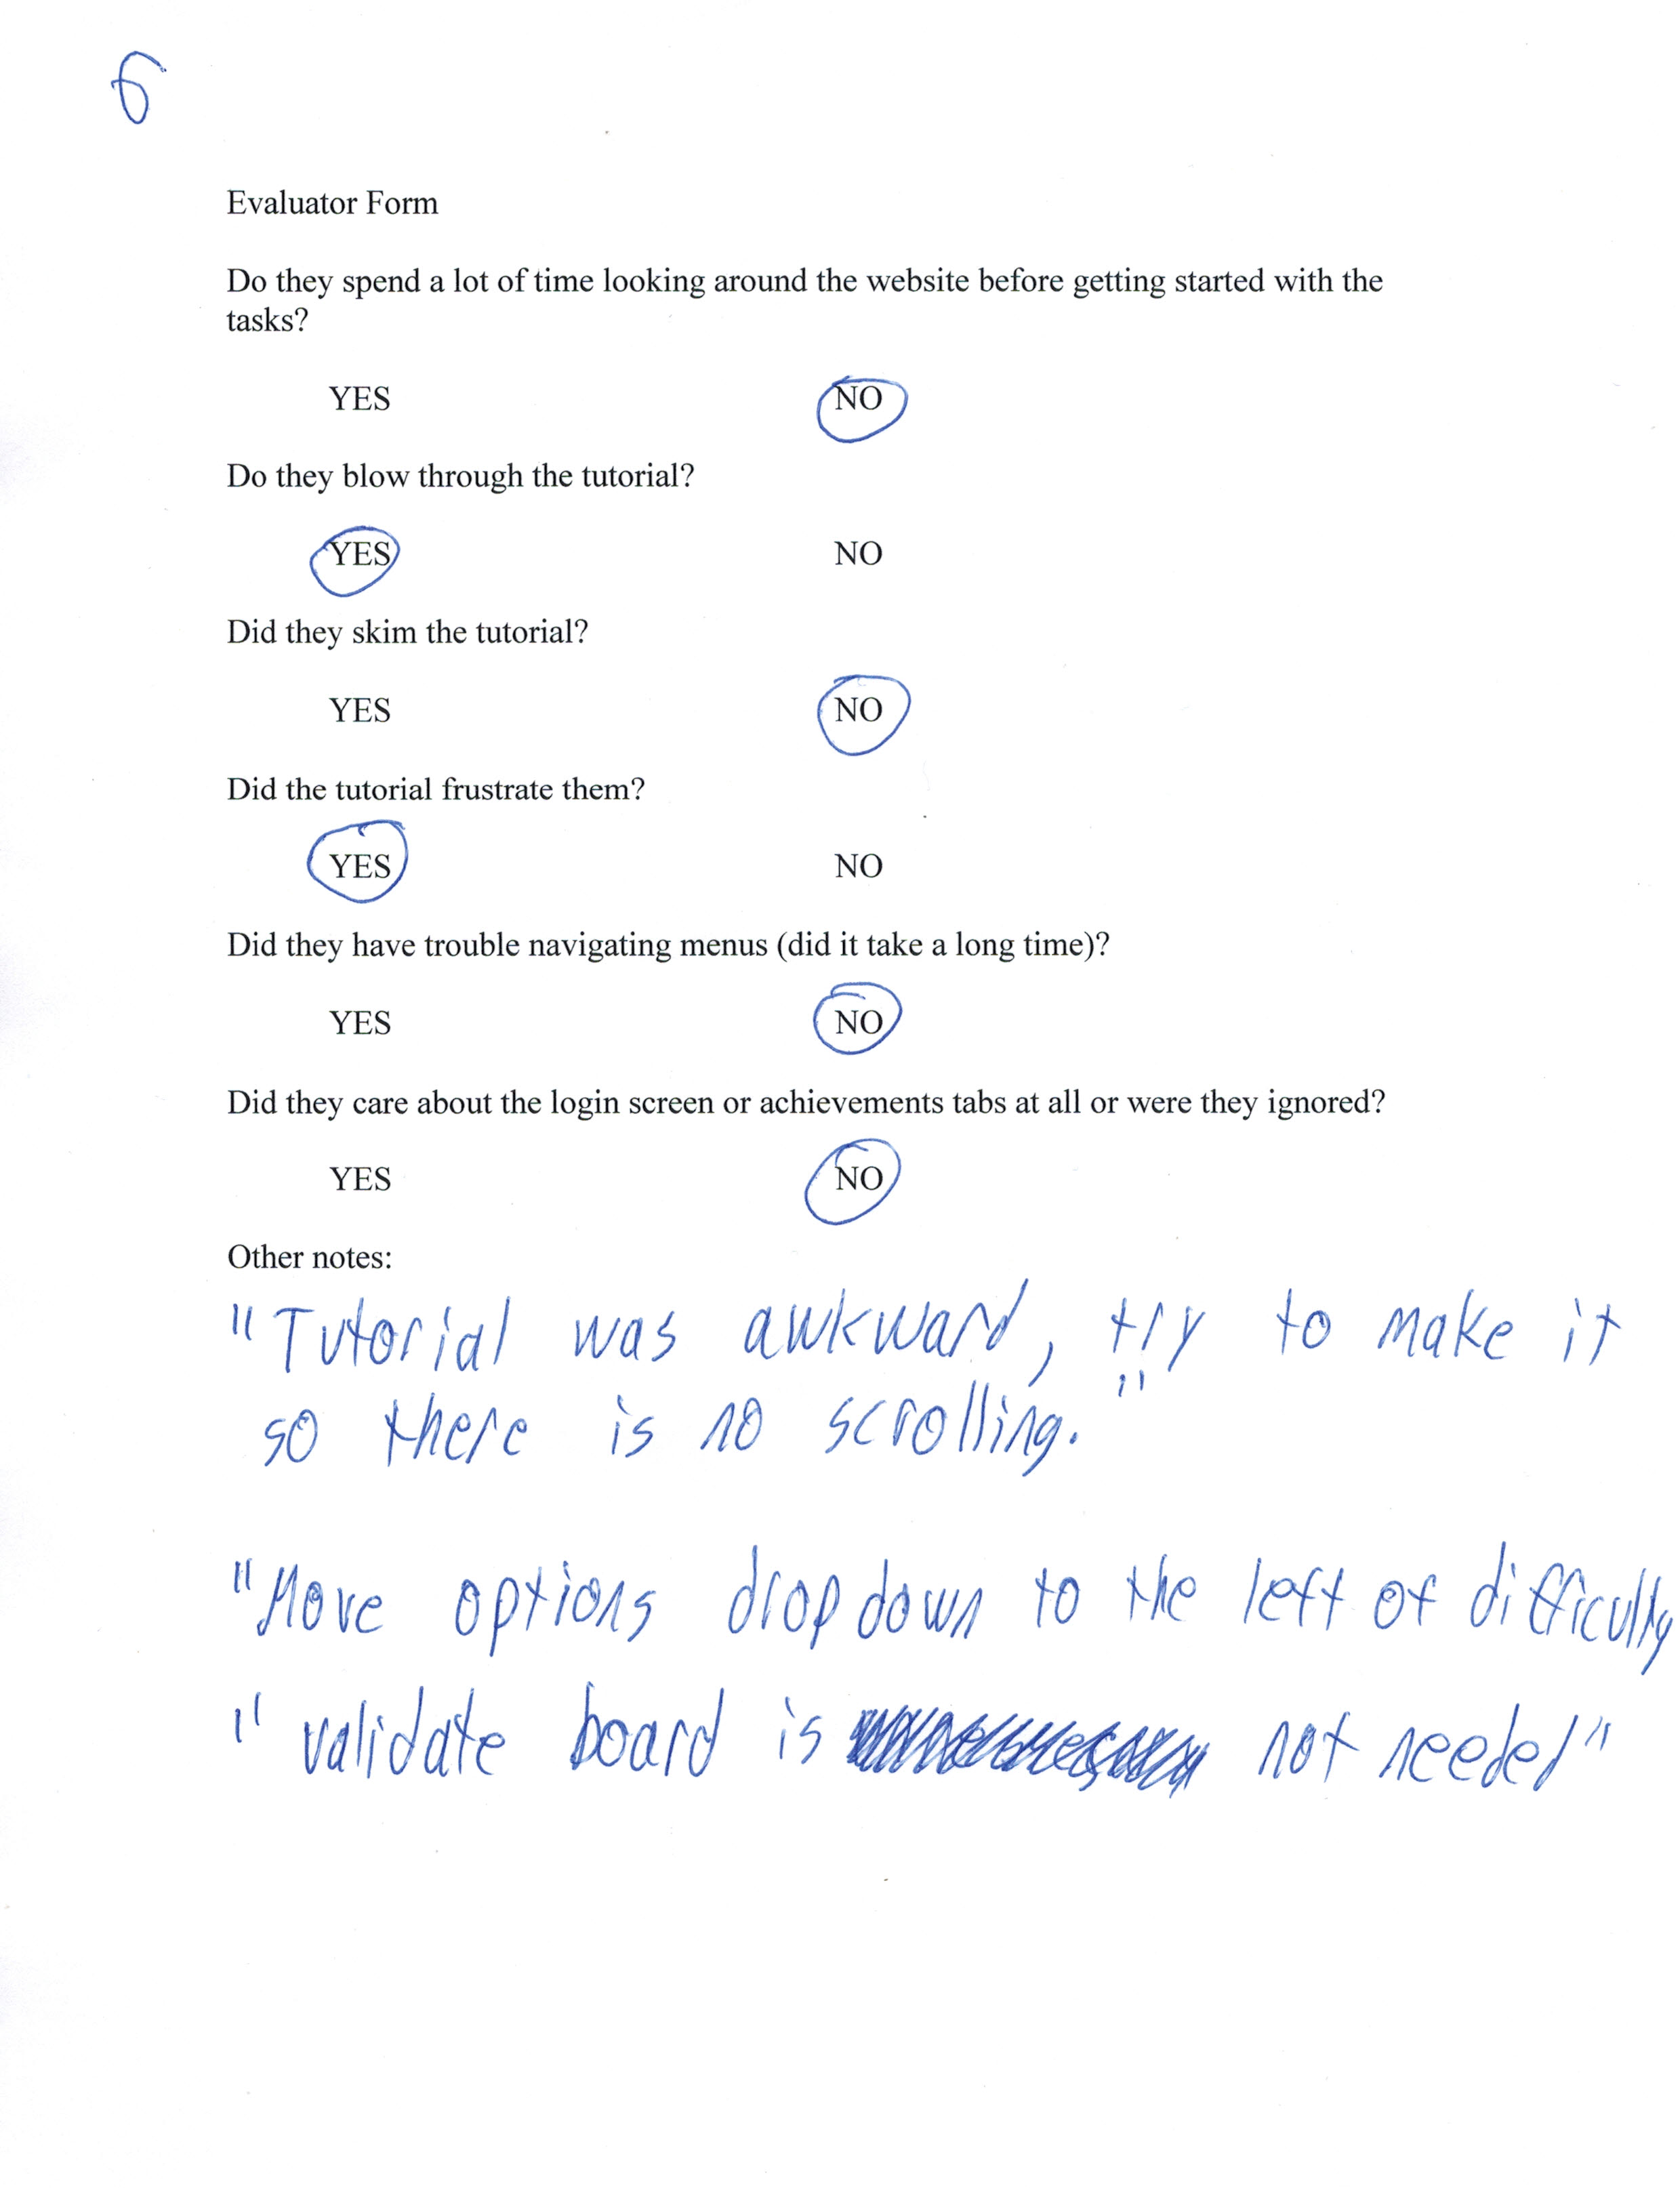 6
Evaluator Form
Do they spend a lot of time looking around the website before getting started with the
tasks?
YES NO
Do they blow through the tutorial?
YES NO
Did they skim the tutorial?
YES NO
Did the tutorial frustrate them?
YES NO
Did they have trouble navigating menus (did it take a long time)?
YES NO
Did they care about the login screen or achievements tabs at all or were they ignored?
YES NO
Other notes:
"Tutorial was awkward, try to make it
so there is no scrolling."
"Move options dropdown to the left of difficulty
"validate board is not needed"